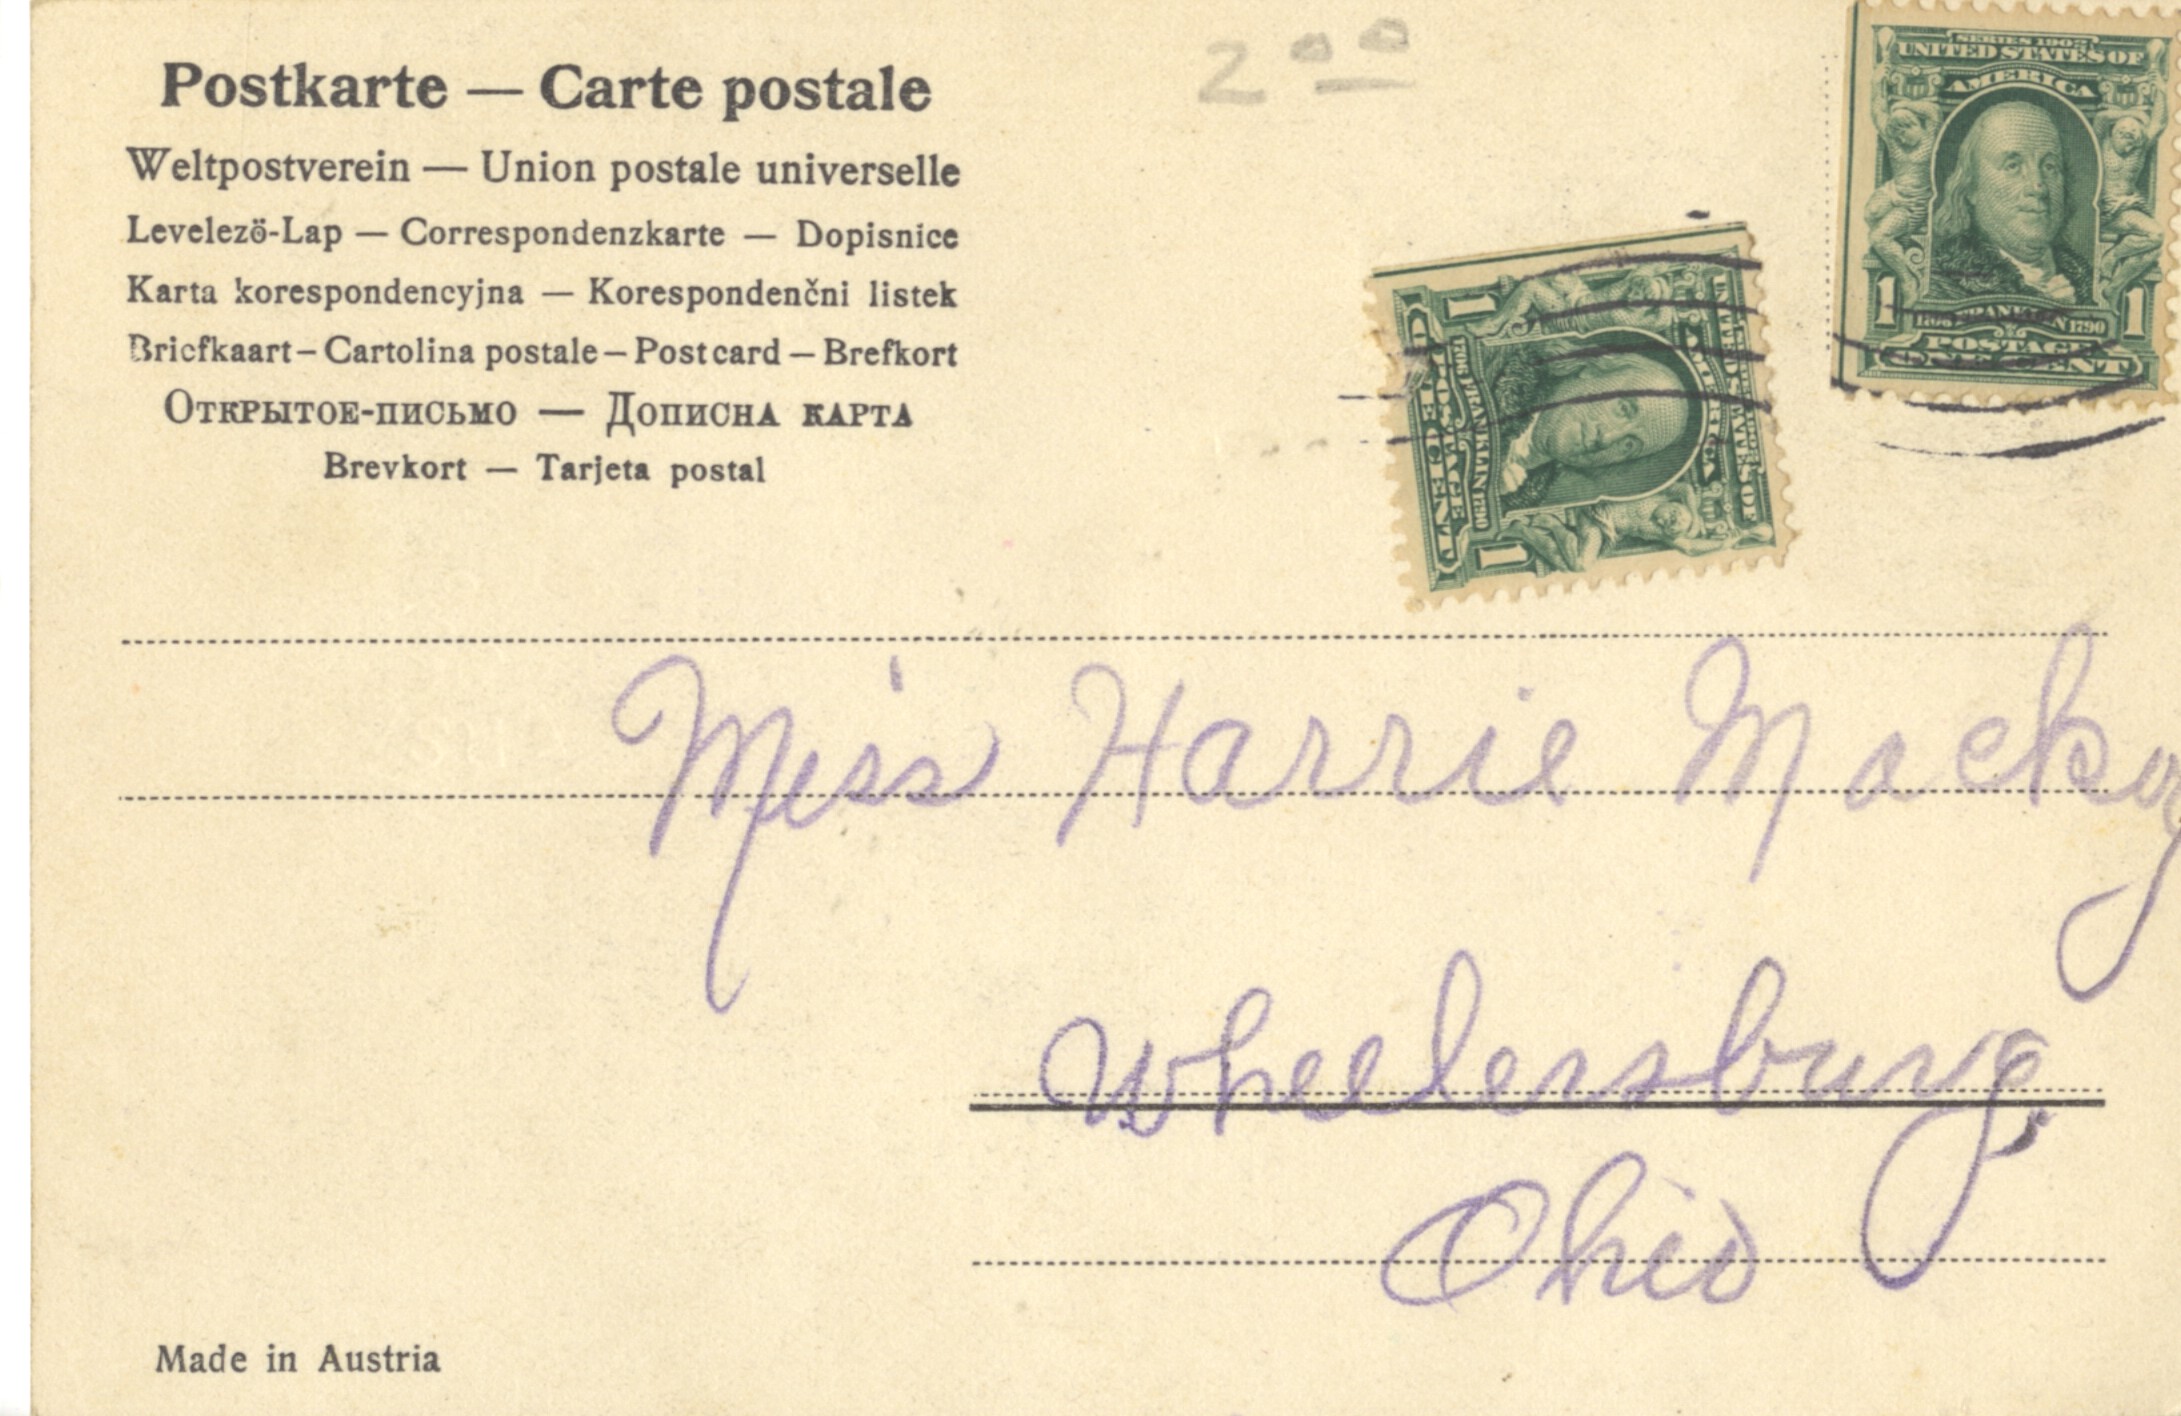 Postkarte — Carte postale
Weltpostverein — Union postale universelle
Levelező-Lap — Correspondenzkarte — Dopisnice
Karta korespondencyjna — Korespondenčni listek
Briefkaart – Cartolina postale – Postcard – Brefkort
Открытое-письмо — Дописна карта
Brevkort — Tarjeta postal
2 00
SERIES 1902
UNITED STATES OF
AMERICA
1 1706 FRANKLIN 1790 1
POSTAGE
ONE CENT
SERIES 1902
UNITED STATES OF
AMERICA
1 1706 FRANKLIN 1790 1
POSTAGE
ONE CENT
Miss Harrie Mackoy
Wheelersburg,
Ohio
Made in Austria